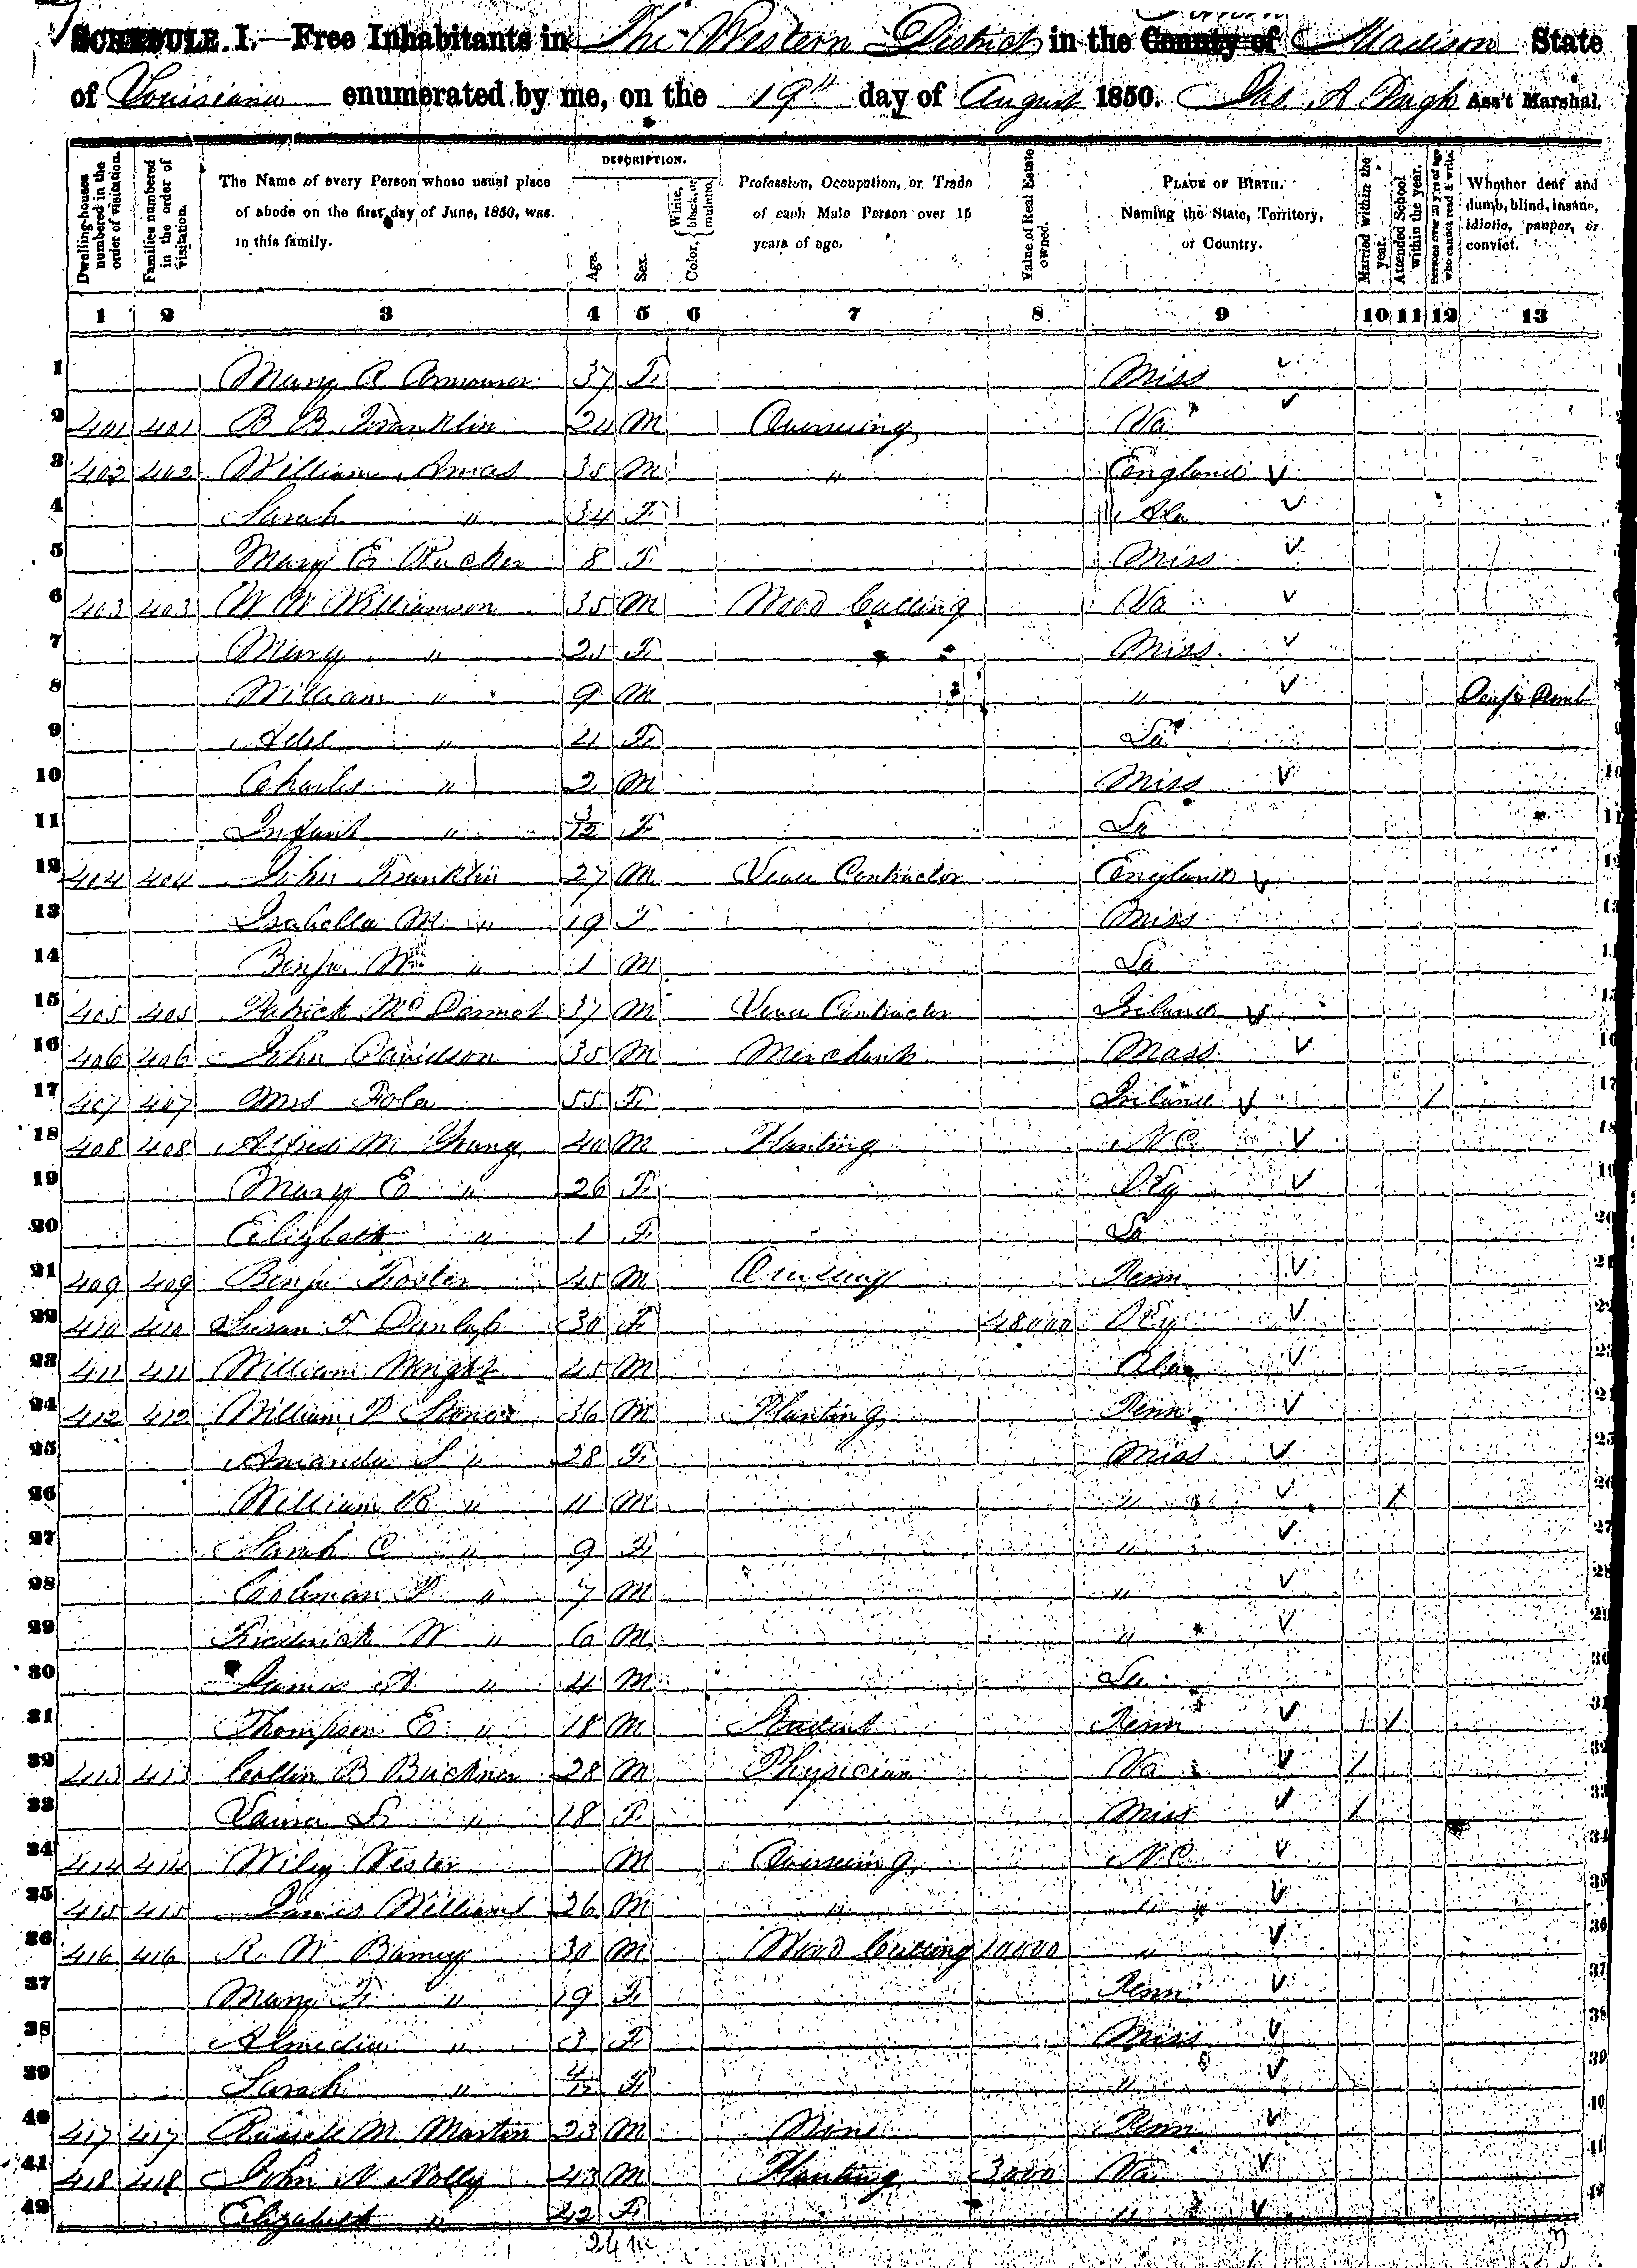 SCHEDULE I.—Free Inhabitants in The Western District in the County of Madison State
of Louisiana enumerated by me, on the 19th day of August 1850. Jas A Pugh Ass't Marshal.
Dwelling-houses numbered in the order of visitation.
Families numbered in the order of visitation.
The Name of every Person whose usual place of abode on the first day of June, 1850, was in this family.
DESCRIPTION.
Age.
Sex.
Color, { White, black, or mulatto.
Profession, Occupation, or Trade of each Male Person over 15 years of age.
Value of Real Estate owned.
PLACE OF BIRTH. Naming the State, Territory, or Country.
Married within the year.
Attended School within the year.
Persons over 20 y'rs of age who cannot read & write.
Whether deaf and dumb, blind, insane, idiotic, pauper, or convict.
1 2 3 4 5 6 7 8 9 10 11 12 13
1 Mary A Armour 37 F Miss
2 401 401 B B Franklin 24 M Overseeing Va
3 402 402 William Amas 35 M " England
4 Sarah " 34 F Ala
5 Mary E Rucker 8 F Miss
6 403 403 W W Williamson 35 M Wood Cutting Va
7 Mary " 21 F Miss
8 William " 9 M " Deaf & Dumb
9 " 4 F La
10 Charles " 2 M Miss
11 Infant " 3/12 F La
12 404 404 John Franklin 27 M Levee Contractor England
13 Isabella M " 19 F Miss
14 Benja W " 1 M La
15 405 405 Patrick McDermot 37 M Levee Contractor Ireland
16 406 406 John Davidson 35 M Merchant Mass
17 407 407 Mrs Fola 55 F Ireland 1
18 408 408 Alfred M Young 40 M Planting N.C.
19 Mary E " 26 F Ky
20 Elizabeth " 1 F La
21 409 409 Benja Foster 45 M Overseeing Tenn
22 410 410 Susan F Dunlap 30 F 48000 Ky
23 411 411 William Wright 45 M Ala
24 412 412 William P 36 M Planting Tenn
25 Amanda S " 28 F Miss
26 William B " 11 M " 1
27 Sarah C " 9 F "
28 Coleman P " 7 M "
29 Frederick W " 6 M "
30 James A " 4 M La
31 Thompson E " 18 M Student Tenn 1
32 413 413 Collin B Buckner 28 M Physician Va 1
33 Laura L " 18 F Miss 1
34 414 414 Wiley Wester M Overseeing N.C.
35 415 415 James Williams 26 M " "
36 416 416 R. W Barney 30 M Wood Cutting 10000 "
37 Mary F " 19 F Tenn
38 Almedia " 3 F Miss
39 Sarah " 4/12 F "
40 417 417 Russell M Martin 23 M None Tenn
41 418 418 John N Nolly 43 M Planting 3000 Va
42 Elizabeth " 42 F "
24 m